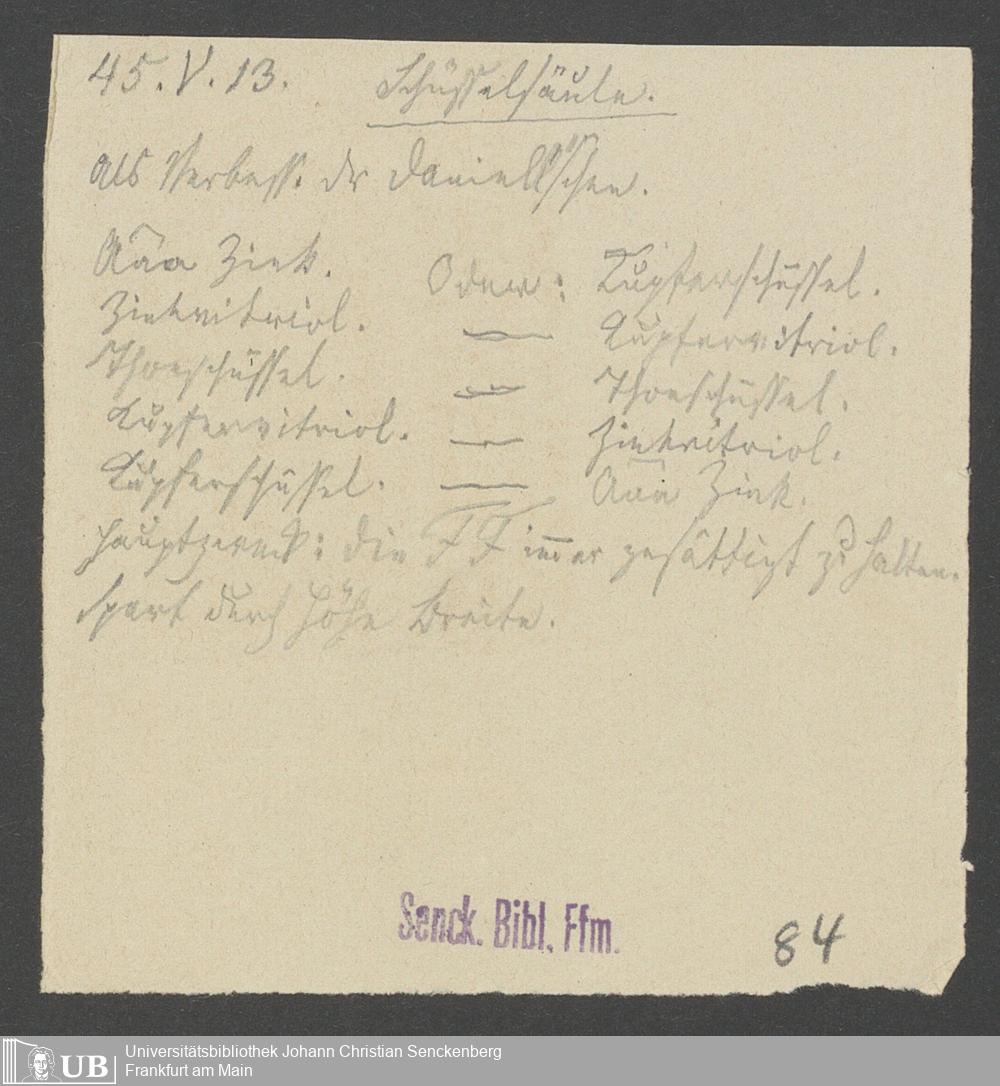 45. V. 13. Schüsselsäule.
als Verbess. dr Daniellschen.
Zink. Oder: Kupferschüssel.
Zinkvitriol. — Kupfervitriol.
Thonschüssel. — Thonschüssel.
Kupfervitriol. — Zinkvitriol.
Kupferschüssel. — Zink.
Hauptzweck: die FF immer gesättigt zu halten.
Spart durch Höhe Breite.
Senck. Bibl. Ffm.
84
UB Universitätsbibliothek Johann Christian Senckenberg
Frankfurt am Main